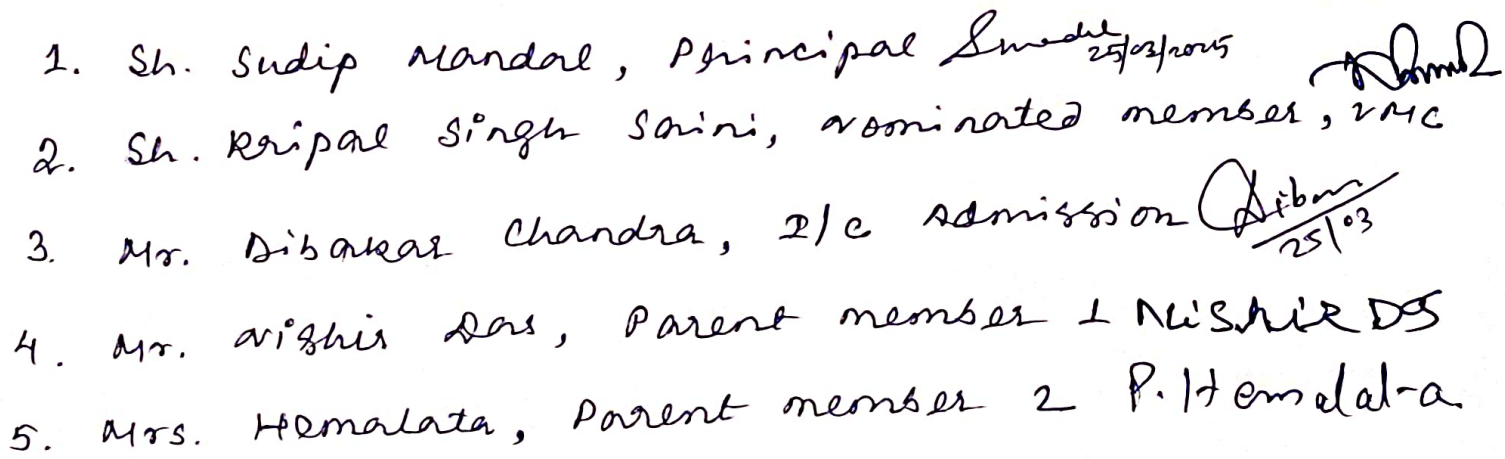 1. Sh. Sudip Mandal, Principal 25/03/2025
2. Sh. Kripal Singh Saini, nominated member, VMC
3. Mr. Dibakar Chandra, I/c Admission Dibar 25/03
4. Mr. Nishir Das, Parent member 1 Nishir DS
5. Mrs. Hemalata, Parent member 2 P. Hemalata